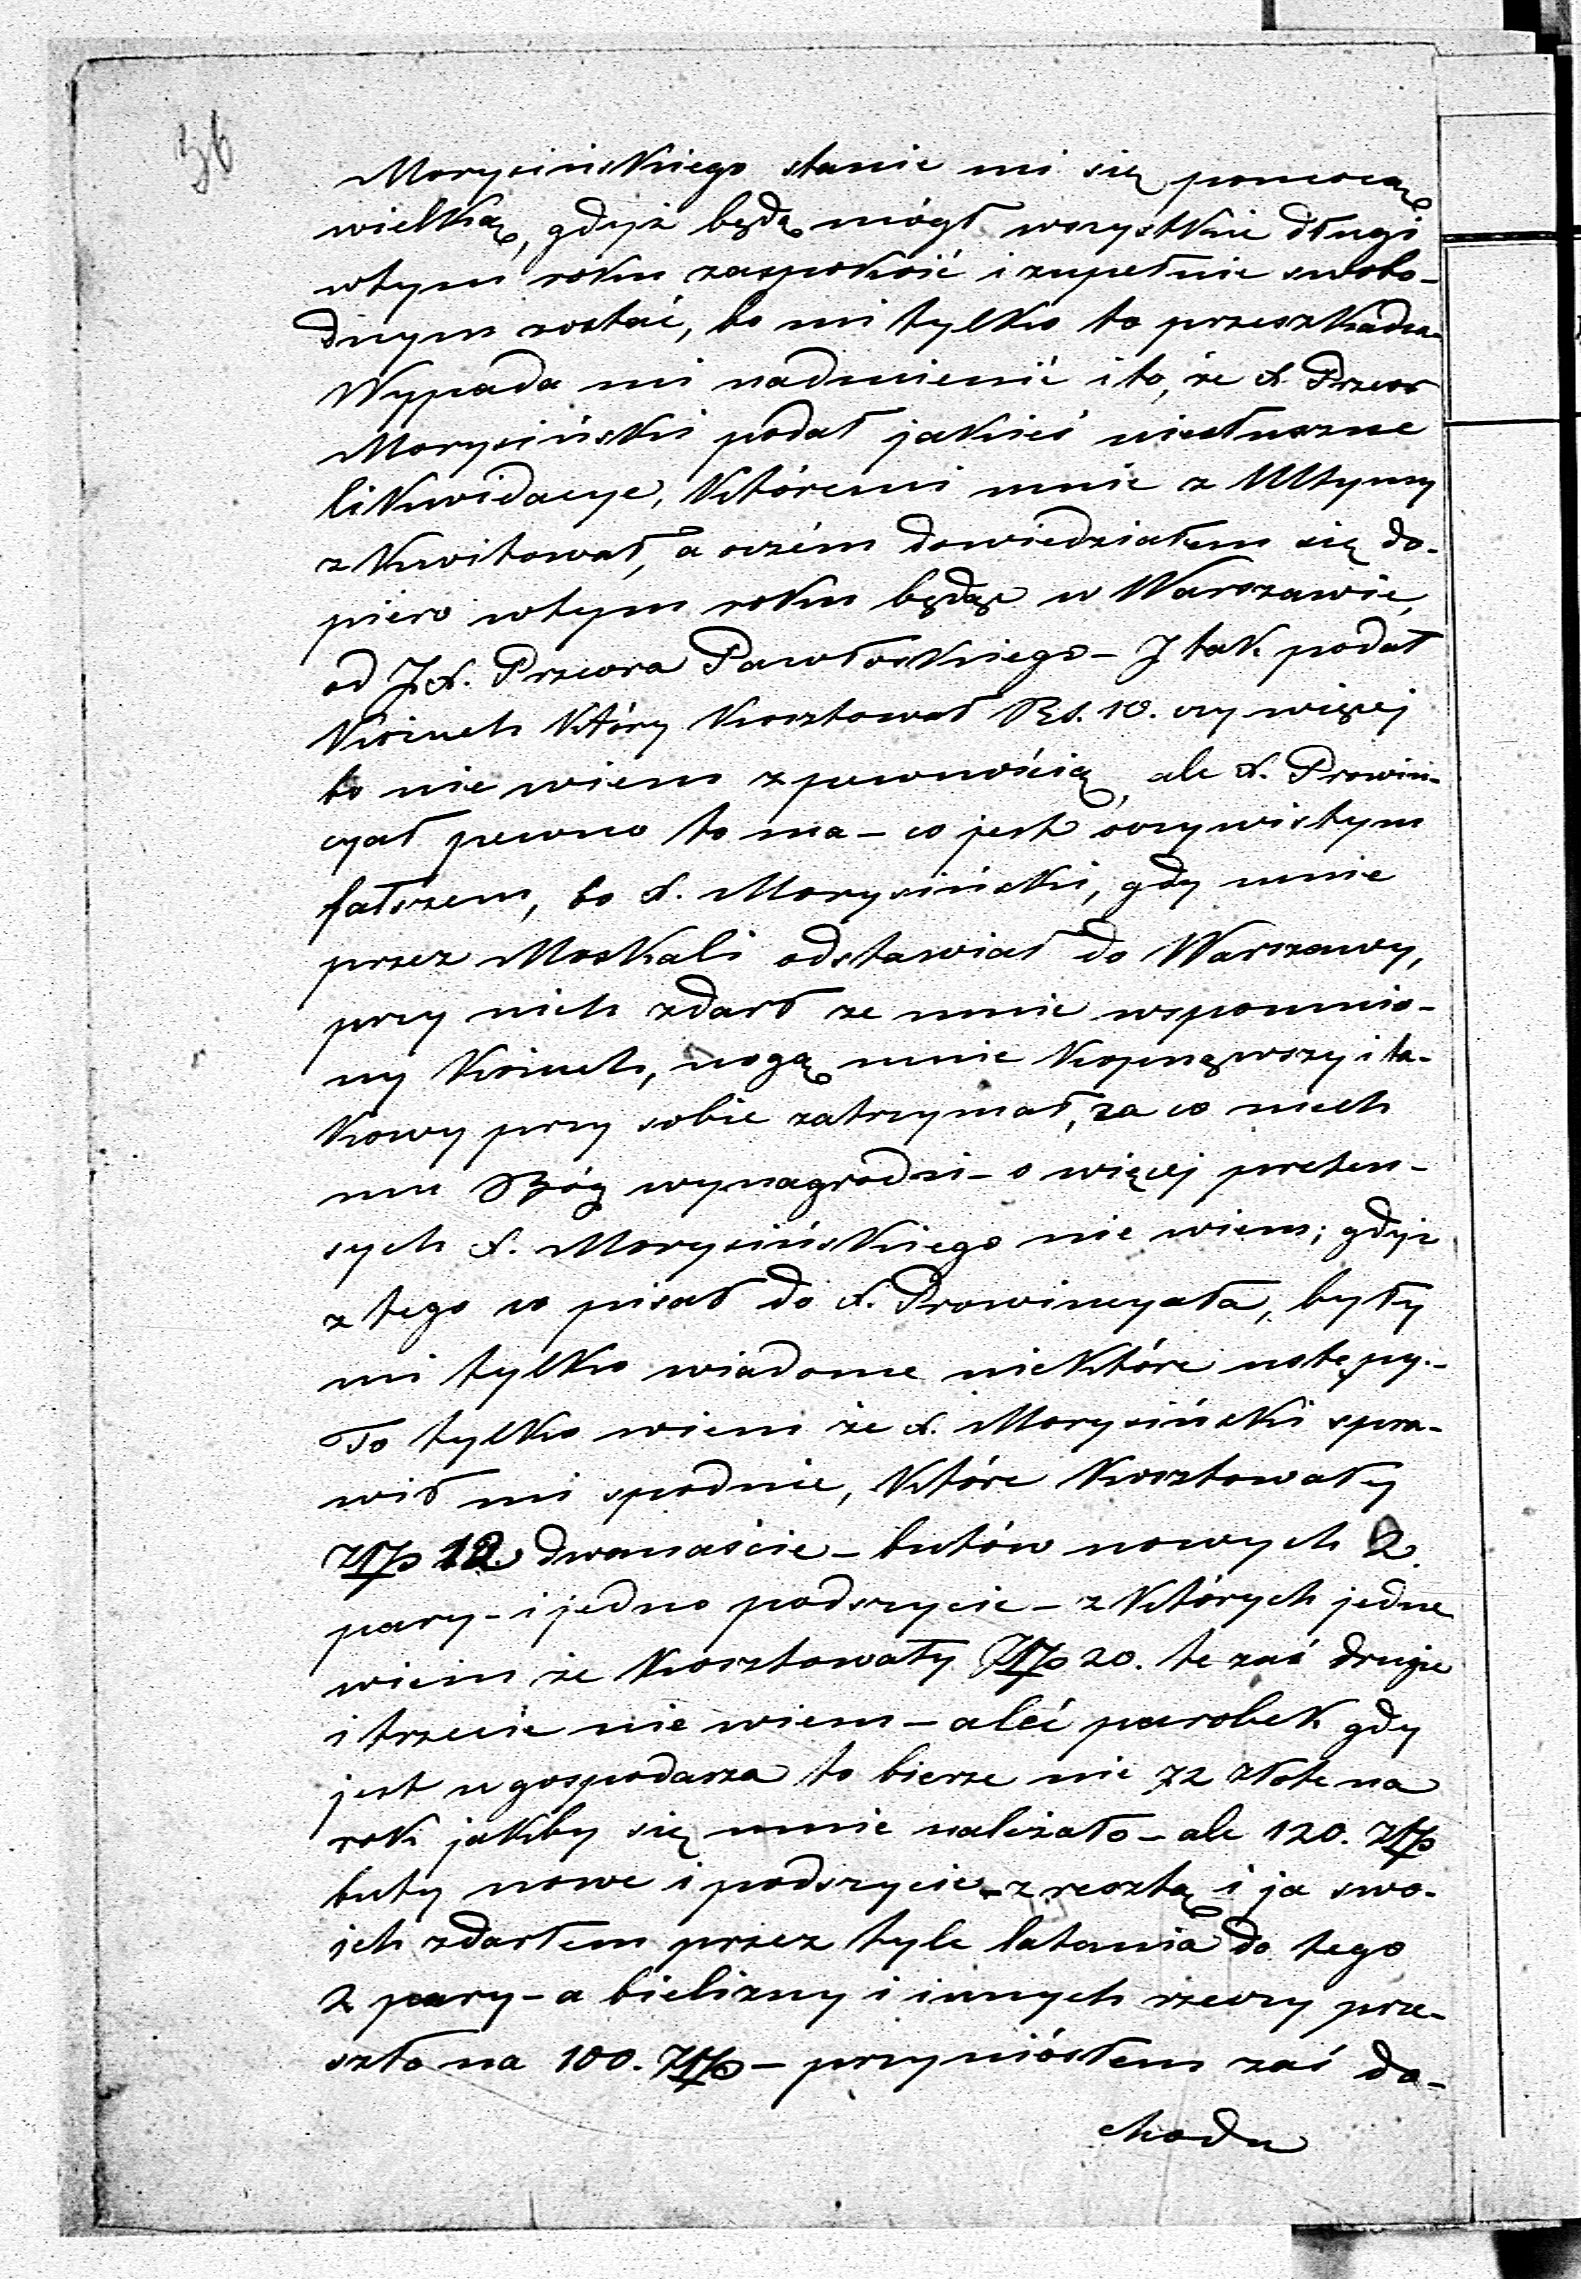 36
Morysińskiego stanie mi się pomocą
wielką, gdyż będę mógł wszystkie długi
wtym roku zaspokoić i zupełnie swobo-
dnym zostać, bo mi tylko to przeszkadza.
Wypada mi nadmienić i to, że X. Przeor
Morysiński podał jakieś niesłuszne
likwidacye, któremi mnie z Mtymy
zkwitował, a oczém dowiedziałem się do-
piero wtym roku będąc w Warszawie,
od JX. Przeora Pawłoskiego – I tak podał
Kożuch który kosztował Rs. 10. czy więcej
to nie wiem zpewnością, ale X. Prowin-
cyał pewno to ma – co jest oczywistym
fałszem, bo X. Morysiński, gdy mnie
przez Moskali odstawiał do Warszawy,
przy nich zdarł ze mnie wspomnio-
ny Kożuch, nogą mnie kopnąwszy i ta-
kowy przy sobie zatrzymał, za co niech
mu Bóg wynagrodzi – o więcej preten-
sych X. Morysińskiego nie wiem; gdyż
z tego co pisał do X. Prowincyała, były
mi tylko wiadome niektóre ustępy. –
To tylko wiem że X. Morysiński spra-
wił mi spodnie, które kosztowały
Złp 12. dwanaście – butów nowych 2.
pary – i jedno podszycie – z których jedne
wiem że kosztowały Złp 20. te zaś drugie
i trzecie nie wiem – aleć parobek gdy
jest u gospodarza to bierze nie 72 złote na
rok jakby się mnie należało – ale 120. Złp
buty nowe i podszycie – zresztą i ja swo-
ich zdarłem przez tyle latania do tego
2 pary – a bielizny i innych rzeczy prze-
szło na 100. Złp – przyniósłem zaś do-
chodu